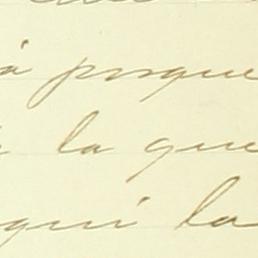 a porque
la que
qui la